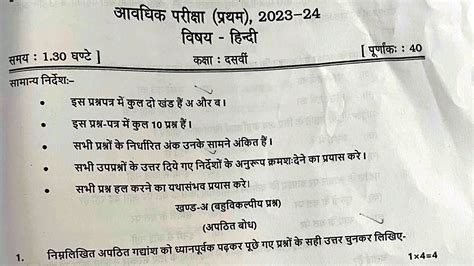 आवधिक परीक्षा (प्रथम), 2023-24
विषय - हिन्दी
समय : 1.30 घण्टे ] कक्षा : दसवीं [ पूर्णांक : 40
सामान्य निर्देश:-
• इस प्रश्नपत्र में कुल दो खंड हैं अ और ब।
• इस प्रश्न-पत्र में कुल 10 प्रश्न हैं।
• सभी प्रश्नों के निर्धारित अंक उनके सामने अंकित हैं।
• सभी उपप्रश्नों के उत्तर दिये गए निर्देशों के अनुरूप क्रमशःदेने का प्रयास करे।
• सभी प्रश्न हल करने का यथासंभव प्रयास करे।
खण्ड-अ (बहुविकल्पीय प्रश्न)
(अपठित बोध)
1. निम्नलिखित अपठित गद्यांश को ध्यानपूर्वक पढ़कर पूछे गए प्रश्नों के सही उत्तर चुनकर लिखिए-
1×4=4